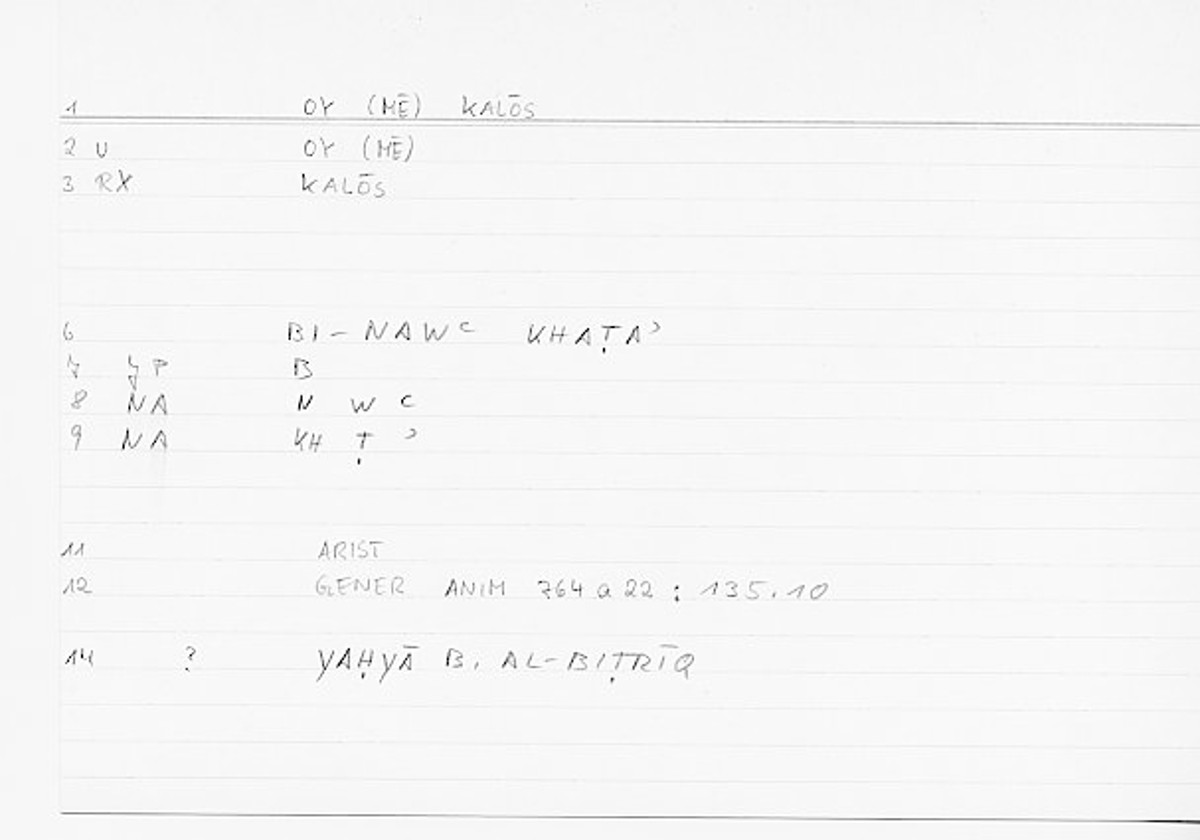 1 OY (MĒ) KALŌS
2 U OY (MĒ)
3 RX KALŌS
6 BI-NAWʿ KHAṬAʾ
7 P B
8 NA N W ʿ
9 NA KH Ṭ ʾ
11 ARIST
12 GENER ANIM 764 a 22 : 135.10
14 ? YAḤYĀ B. AL-BIṬRĪQ